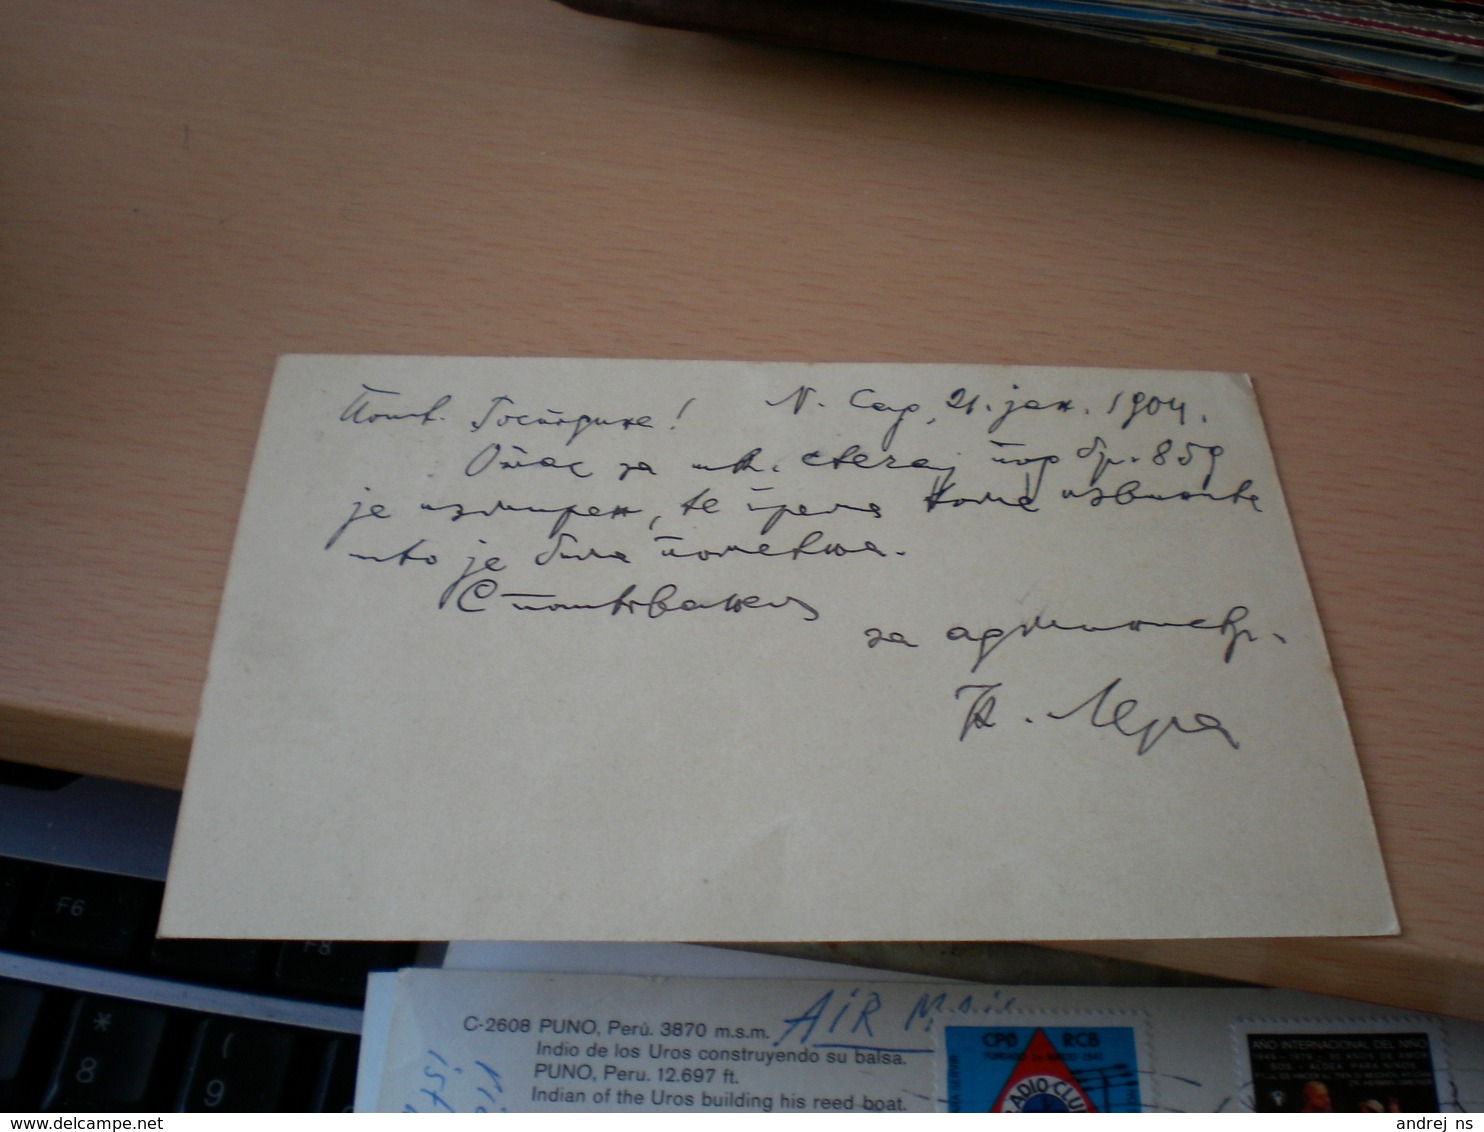 Пошт. Господине! Н. Сад, 21. јан. 1904.
Оглас за књ. стечај под бр. 859
је измирен, те према томе извините
што је била пометња.
С поштовањем
за администр.
К. Лера
F6
F8
*
8
9
C-2608 PUNO, Perú. 3870 m.s.m.
Indio de los Uros construyendo su balsa.
PUNO, Peru. 12.697 ft.
Indian of the Uros building his reed boat.
AIR Mail
CPØ RCB
RADIO CLUB
AÑO INTERNACIONAL DEL NIÑO
andrej_ns
delcampe.net